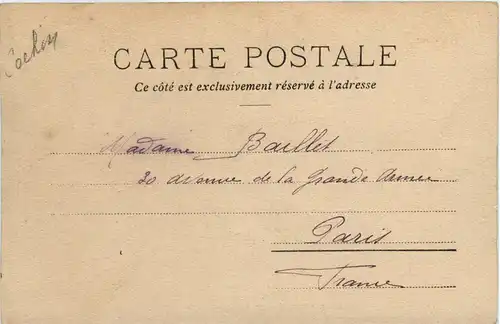 Cochin
CARTE POSTALE
Ce côté est exclusivement réservé à l'adresse
Madame Baillet
30 avenue de la Grande Armée
Paris
France